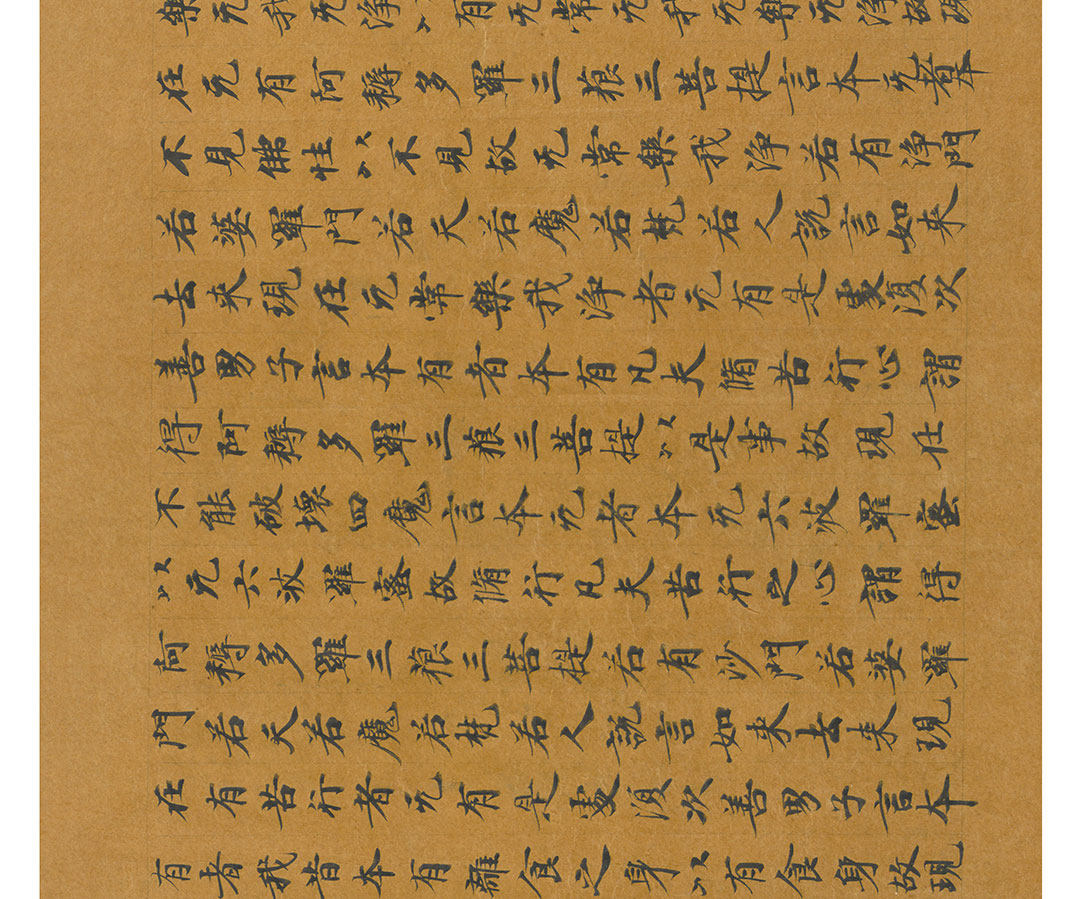 樂无我无淨以有无常无我无樂无淨故現
在无有阿耨多羅三藐三菩提言本无者本
不見佛性以不見故无常樂我淨若有淨門
若婆羅門若天若魔若梵若人說言如来
去来現在无常樂我淨者无有是處復次
善男子言本有者本有凡夫脩苦行心謂
得阿耨多羅三藐三菩提以是事故現在
不能破壞四魔言本无者本无六波羅蜜
以无六波羅蜜故脩行凡夫苦行之心謂得
阿耨多羅三藐三菩提若有沙門若婆羅
門若天若魔若梵若人說言如来去来現
在有苦行者无有是處復次善男子言本
有者我昔本有雜食之身以有食身故現